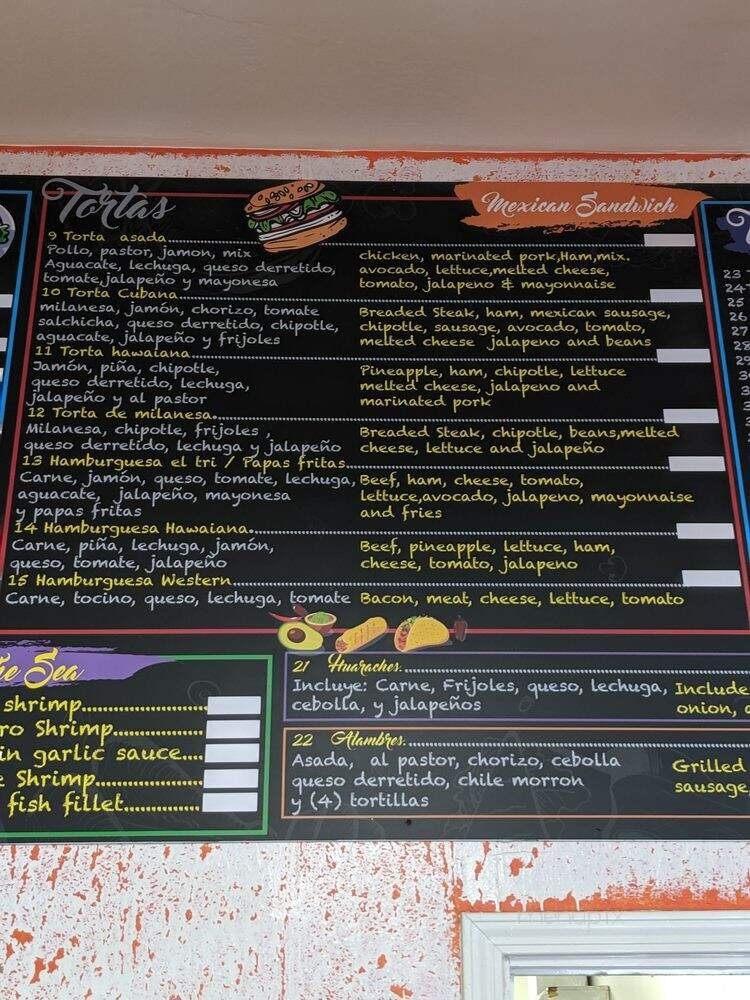 Tortas
Mexican Sandwich
9 Torta asada
Pollo, pastor, jamon, mix
Aguacate, lechuga, queso derretido,
tomate,jalapeño y mayonesa
chicken, marinated pork,Ham,mix.
avocado, lettuce,melted cheese,
tomato, jalapeno & mayonnaise
10 Torta Cubana
milanesa, jamón, chorizo, tomate
salchicha, queso derretido, chipotle,
aguacate, jalapeño y frijoles
Breaded Steak, ham, mexican sausage,
chipotle, sausage, avocado, tomato,
melted cheese jalapeno and beans
11 Torta hawaiana
Jamón, piña, chipotle,
queso derretido, lechuga,
jalapeño y al pastor
Pineapple, ham, chipotle, lettuce
melted cheese, jalapeno and
marinated pork
12 Torta de milanesa
Milanesa, chipotle, frijoles ,
queso derretido, lechuga y jalapeño
Breaded Steak, chipotle, beans,melted
cheese, lettuce and jalapeño
13 Hamburguesa el tri / Papas fritas
Carne, jamón, queso, tomate, lechuga,
aguacate, jalapeño, mayonesa
y papas fritas
Beef, ham, cheese, tomato,
lettuce,avocado, jalapeno, mayonnaise
and fries
14 Hamburguesa Hawaiana
Carne, piña, lechuga, jamón,
queso, tomate, jalapeño
Beef, pineapple, lettuce, ham,
cheese, tomato, jalapeno
15 Hamburguesa Western
Carne, tocino, queso, lechuga, tomate
Bacon, meat, cheese, lettuce, tomato
Sea
shrimp
Shrimp
garlic sauce
Shrimp
fish fillet
21 Huaraches
Incluye: Carne, Frijoles, queso, lechuga,
cebolla, y jalapeños
Include
onion,
22 Alambres
Asada, al pastor, chorizo, cebolla
queso derretido, chile morron
y (4) tortillas
Grilled
sausage,
23
24
25
26
27
28